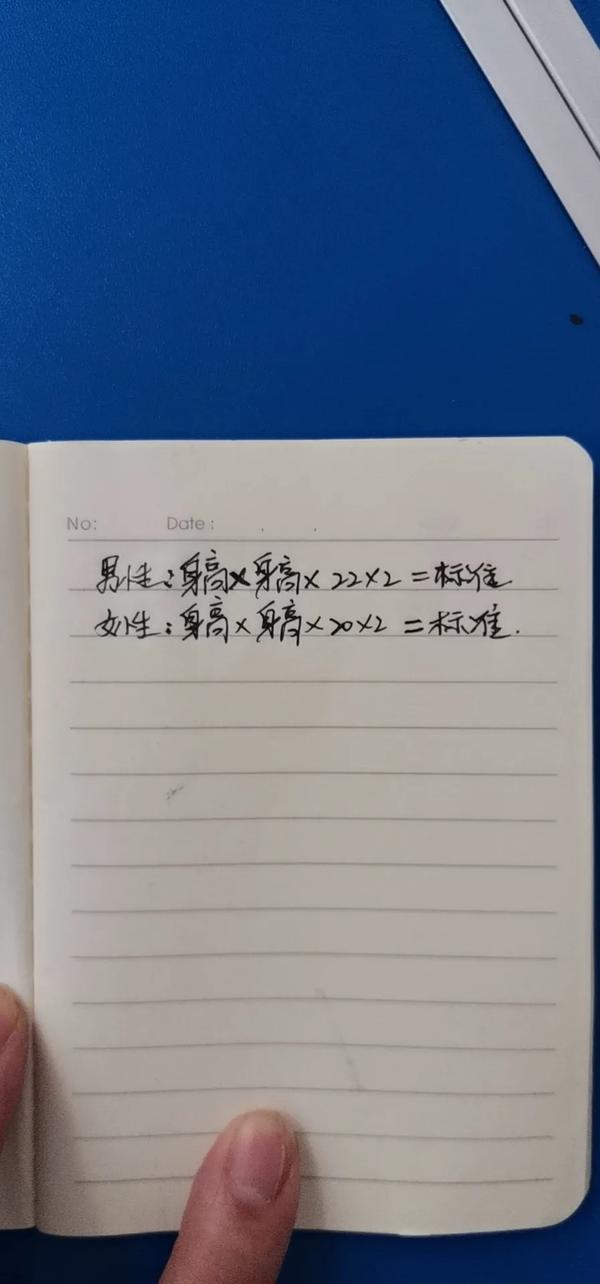 No: Date :
男性:身高×身高×22×2=标准.
女性:身高×身高×20×2=标准.